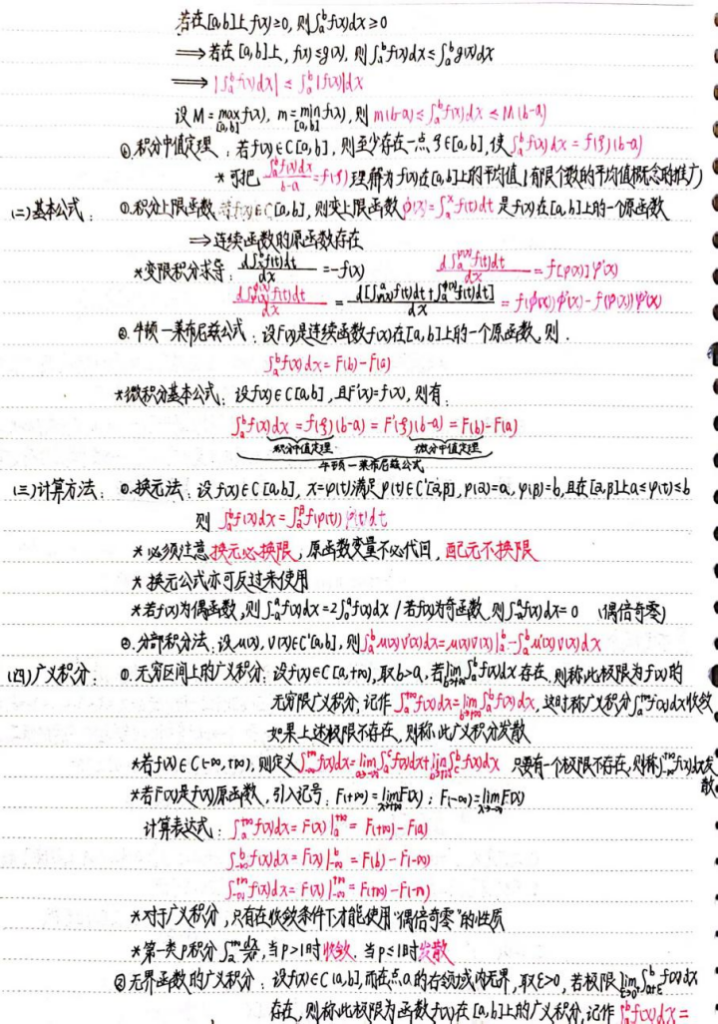 若在[a,b]上f(x)≥0,则∫ₐᵇf(x)dx≥0
⟹若在[a,b]上,f(x)≤g(x),则∫ₐᵇf(x)dx≤∫ₐᵇg(x)dx
⟹|∫ₐᵇf(x)dx|≤∫ₐᵇ|f(x)|dx
设M=max_[a,b] f(x), m=min_[a,b] f(x),则m(b-a)≤∫ₐᵇf(x)dx≤M(b-a)
②.积分中值定理:若f(x)∈C[a,b],则至少存在一点ξ∈[a,b],使∫ₐᵇf(x)dx=f(ξ)(b-a)
*可把 ∫ₐᵇf(x)dx/(b-a)=f(ξ)理解为f(x)在[a,b]上的平均值(有限个数的平均值概念的推广)
(二)基本公式: ①.积分上限函数:若f(x)∈C[a,b],则变上限函数φ(x)=∫ₐˣf(t)dt是f(x)在[a,b]上的一个原函数
⟹连续函数的原函数存在
*变限积分求导: =-f(x) d∫ₐ^φ(x) f(t)dt/dx=f[φ(x)]φ'(x)
②.牛顿-莱布尼兹公式:设F(x)是连续函数f(x)在[a,b]上的一个原函数,则.
∫ₐᵇf(x)dx=F(b)-F(a)
*微积分基本公式:设f(x)∈C[a,b],且F'(x)=f(x),则有:
∫ₐᵇf(x)dx=f(ξ)(b-a)=F'(ξ)(b-a)=F(b)-F(a)
积分中值定理 微分中值定理
牛顿-莱布尼兹公式
(三)计算方法: ①.换元法:设f(x)∈C[a,b], x=φ(t)满足φ(t)∈C'[α,β], φ(α)=a, φ(β)=b,且在[α,β]上a≤φ(t)≤b
则 ∫ₐᵇf(x)dx=∫_α^β f(φ(t))φ'(t)dt
*必须注意换元必换限,原函数变量不必代回,配元不换限
*换元公式亦可反过来使用
*若f(x)为偶函数,则∫₋ₐᵃf(x)dx=2∫₀ᵃf(x)dx / 若f(x)为奇函数,则∫₋ₐᵃf(x)dx=0 (偶倍奇零)
②.分部积分法:设u(x),v(x)∈C'[a,b],则∫ₐᵇu(x)v'(x)dx=u(x)v(x)|ₐᵇ-∫ₐᵇu'(x)v(x)dx
(四)广义积分: ①.无穷区间上的广义积分:设f(x)∈C[a,+∞),取b>a,若lim_b→+∞ ∫ₐᵇf(x)dx存在,则称此极限为f(x)的
无穷限广义积分,记作∫ₐ^+∞ f(x)dx=lim_b→+∞ ∫ₐᵇf(x)dx,这时称广义积分∫ₐ^+∞ f(x)dx收敛
如果上述极限不存在,则称此广义积分发散
*若f(x)∈C(-∞,+∞),则定义 只要有一个极限不存在,则称∫_-∞^+∞ f(x)dx发散
*若F(x)是f(x)原函数,引入记号:F(+∞)=lim_x→+∞ F(x);F(-∞)=lim_x→-∞ F(x)
计算表达式:∫ₐ^+∞ f(x)dx=F(x)|ₐ^+∞=F(+∞)-F(a)
∫_-∞^b f(x)dx=F(x)|_-∞^b=F(b)-F(-∞)
∫_-∞^+∞ f(x)dx=F(x)|_-∞^+∞=F(+∞)-F(-∞)
*对于广义积分,只有在收敛条件下才能使用"偶倍奇零"的性质
*第一类P积分∫ₐ^+∞ dx/xᵖ,当P>1时收敛.当P≤1时发散
②无界函数的广义积分:设f(x)∈C(a,b],而在点a的右邻域内无界,取ε>0,若极限lim_ε→0 ∫_a+ε^b f(x)dx
存在,则称此极限为函数f(x)在[a,b]上的广义积分,记作∫ₐᵇf(x)dx=